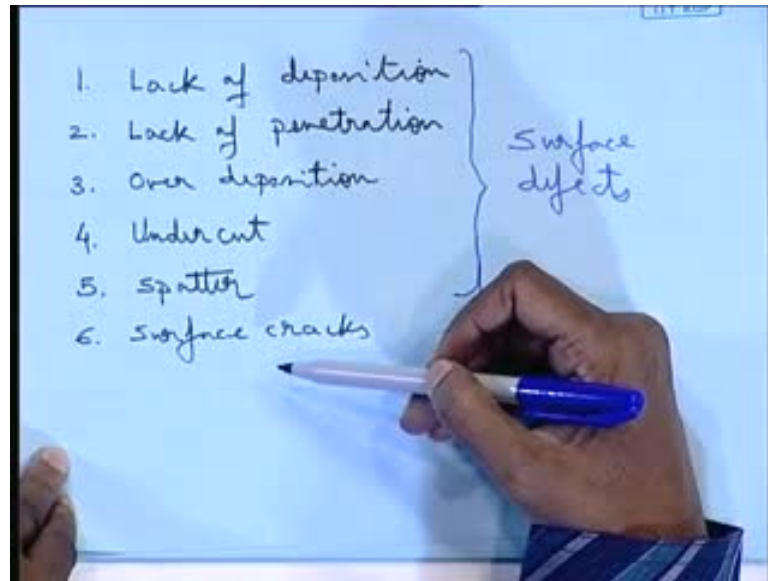 1. Lack of deposition
2. Lack of penetration
3. Over deposition
4. Undercut
5. Spatter
6. Surface cracks
Surface
defects